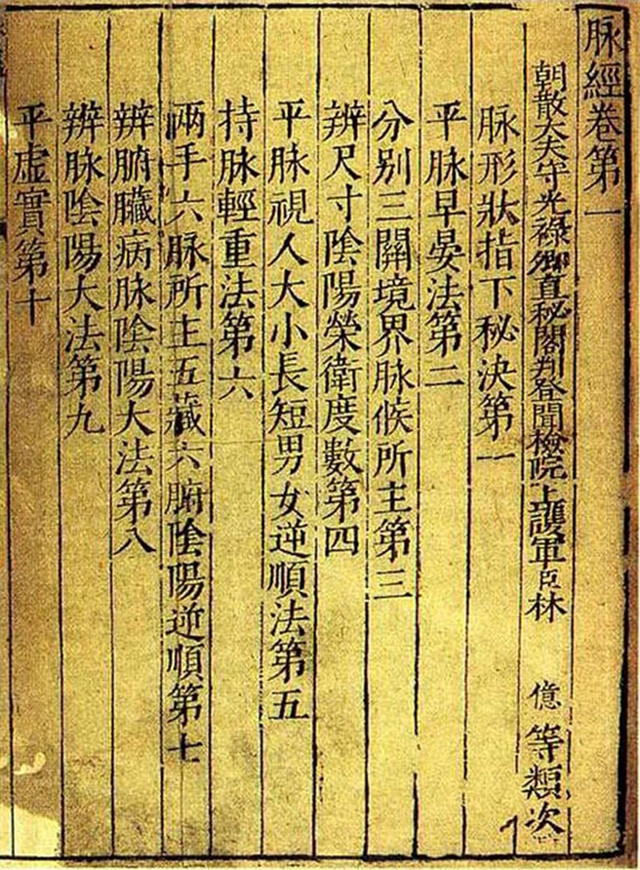 脉經卷第一
朝散大夫守光祿卿直秘閣判登聞檢院上護軍臣林 億等類次
脉形狀指下秘決第一
平脉早晏法第二
分别三關境界脉候所主第三
辨尺寸陰陽榮衛度數第四
平脉視人大小長短男女逆順法第五
持脉輕重法第六
兩手六脉所主五藏六腑陰陽逆順第七
辨腑臓病脉陰陽大法第八
辨脉陰陽大法第九
平虚實第十